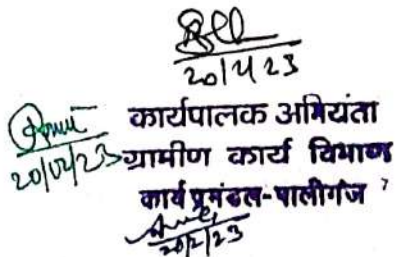 20/2/23
20/02/23
कार्यपालक अभियंता
ग्रामीण कार्य विभाग
कार्य प्रमंडल-पालीगंज
20/2/23